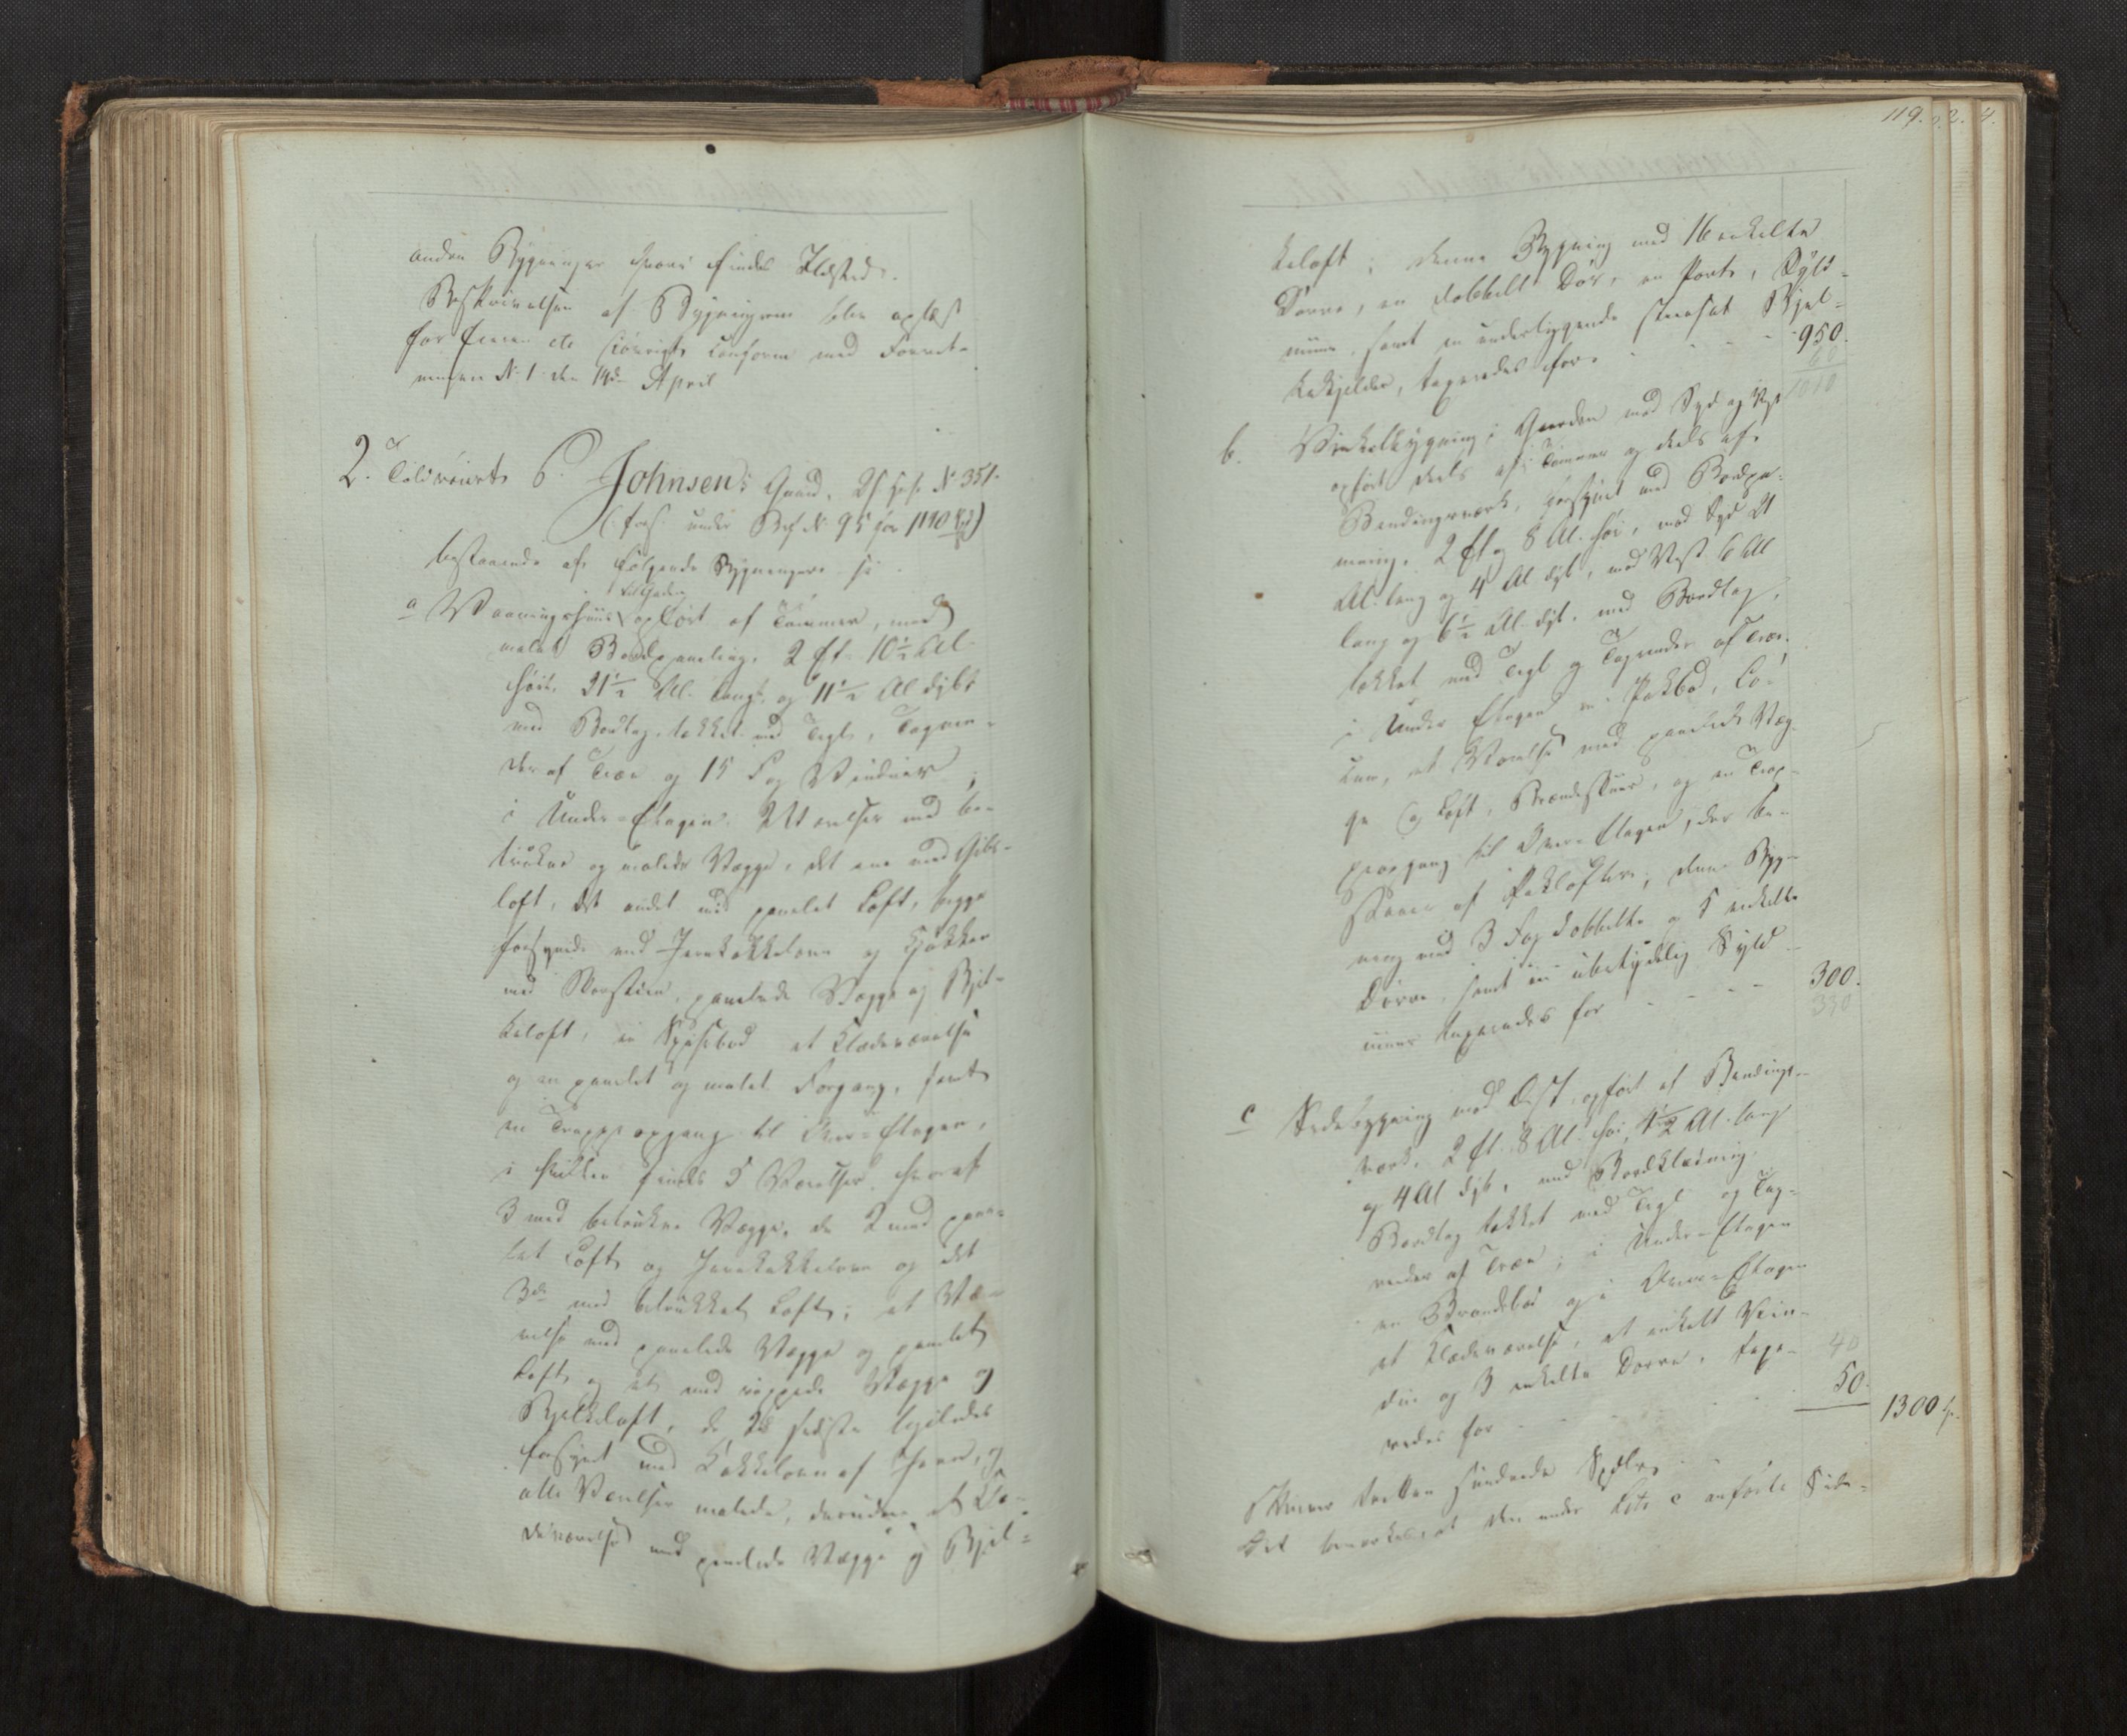 anden Bygninger hvori findes Ildsted.
Beskrivelsen af Bygningerne blev oplæst
for Eieren etc. iøvrigt conform med Forret-
ningen N. 1 den 19de April
2. P. Johnsens Gaard, N. 351.
(fors. under Brf. N. 95 for 1190 )
bestaaende af følgende Bygninger
a Vaaningshuus til Gaden opført af Tømmer, med
malet Bordpaneling. 2 Et. 10½ Al.
høit, 21½ Al. langt, og 11½ Al. dybt
med Bordtag, tækket med Tegl, Tagren-
der af Træe og 15 Fag Vinduer;
i Under-Etagen 2 Værelser med be-
trukne og malede Vægge, det ene med Gibs-
loft, det andet med panelet Loft, begge
forsynede med Jernkakkelovne og Kjøkken
med Skorsteen, panelede Vægge og Bjel-
keloft, en Spiisebod et Klædeværelse
og en panelet og malet Forgang, samt
en Trappeopgang til Over-Etagen,
i hvilken findes 5 Værelser hvoraf
3 med betrukne Vægge, de 2 med pane-
let Loft og Jernkakkelovne og det
3die med betrukket Loft; et Væ-
relse med panelede Vægge og panelet
Loft og et med rappede Vægge og
Bjelkeloft, de 2de sidste ligeledes
forsynet med Kakkelovn af Jern, og
alle Værelser malede, desuden et Klæ-
deværelse med panelede Vægge og Bjel-
119.
keloft; denne Bygning med 16 enkelte
Dørre, en dobbelt Dør, en Port, Syld-
muur, samt en underliggende steensat Bjel-
kekjelder, taxeredes for - - - 950.
60
1010
b. Vinkelbygning i Gaarden mod Syd og Vest
opført deels af Tømmer og deels af
Bindingsværk, forsynet med Bordpa-
neling. 2 Et. og 8 Al. høi, mod Syd 21
Al. lang og 4 Al. dyb, mod Vest 6 Al.
lang og 6½ Al. dyb, med Bordtag,
tækket med Tegl og Tagrender af Træe.
i Under Etagen en Pakbod,
et Værelse med panelede Væg-
ge og Loft, Brændeskuur, og en Trap-
peopgang til Over-Etagen, der be-
staaer af Pakloft; denne Byg-
ning med 3 Fag dobbelte og 5 enkelte
Dørre, samt en ubetydelig Syld-
muur taxeredes for - - - - 300.
330
c Sidebygning mod Øst, opført af Bindings-
værk, 2 Et. 8 Al. høi, 4½ Al. lang
og 4 Al. dyb, med Bordklædning.
Bordtag tækket med Tegl og Tag-
render af Træe; i Under-Etagen
en Brændebod og i Over-Etagen
et Klædeværelse, et enkelt Vin-
due og 3 enkelte Dørre, taxe- 40
redes for - - - 50.
1300
Skriver Tretten Hundrede Spdlr.
Det bemærkes, at den under Litr c anførte Side-